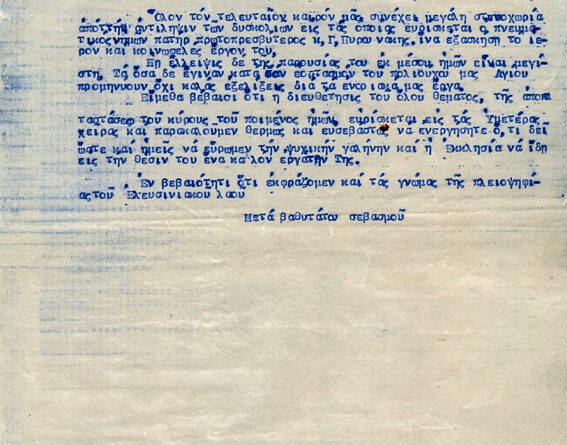 Ὅλον τόν τελευταῖον καιρόν μᾶς συνέχει μεγάλη στενοχωρία
ἀπό τήν ἀντίληψιν τῶν δυσκολιῶν εἰς τάς ὁποίας εὑρίσκεται ὁ πνευμα
τικος ημῶν πατήρ πρωτοπρεσβύτερος κ. Γ. Πυρουνάκης ἵνα ἐξασκήση τό ἱε
ρόν καί κοινωφελές ἔργον του,
Ἡ ἔλλειψις δέ τῆς παρουσίας του ἐκ μέσου ἡμῶν εἶναι μεγί-
στη Τά ὅσα δέ ἔγιναν κατά τόν ἑορτασμόν τοῦ πολιούχου μας Ἁγίου
προμηνύουν ὄχι καλάς ἐξελίξεις διά τά ἐνοριακά μας ἔργα.
Εἴμεθα βέβαιοι ὅτι ἡ διευθέτησις τοῦ ὅλου θέματος, τῆς ἀποκα
ταστάσεως τοῦ κύρους τοῦ ποιμένος ἡμῶν εὑρίσκεται εἰς τάς Ὑμετέρας
χεῖρας καί παρακαλοῦμεν θερμῶς καί εὐσεβάστως νά ἐνεργήσητε ὅ,τι δεῖ
ὥστε καί ἡμεῖς νά εὕρωμεν τήν ψυχικήν γαλήνην καί ἡ Ἐκκλησία νά ἴδη
εἰς τήν θέσιν του ἕνα καλόν ἐργάτην Της.
Ἐν βεβαιότητι ὅτι ἐκφράζομεν καί τάς γνώμας τῆς πλειοψηφί-
ας του Ελευσινιακου λαου
Μετά βαθυτάτου σεβασμοῦ